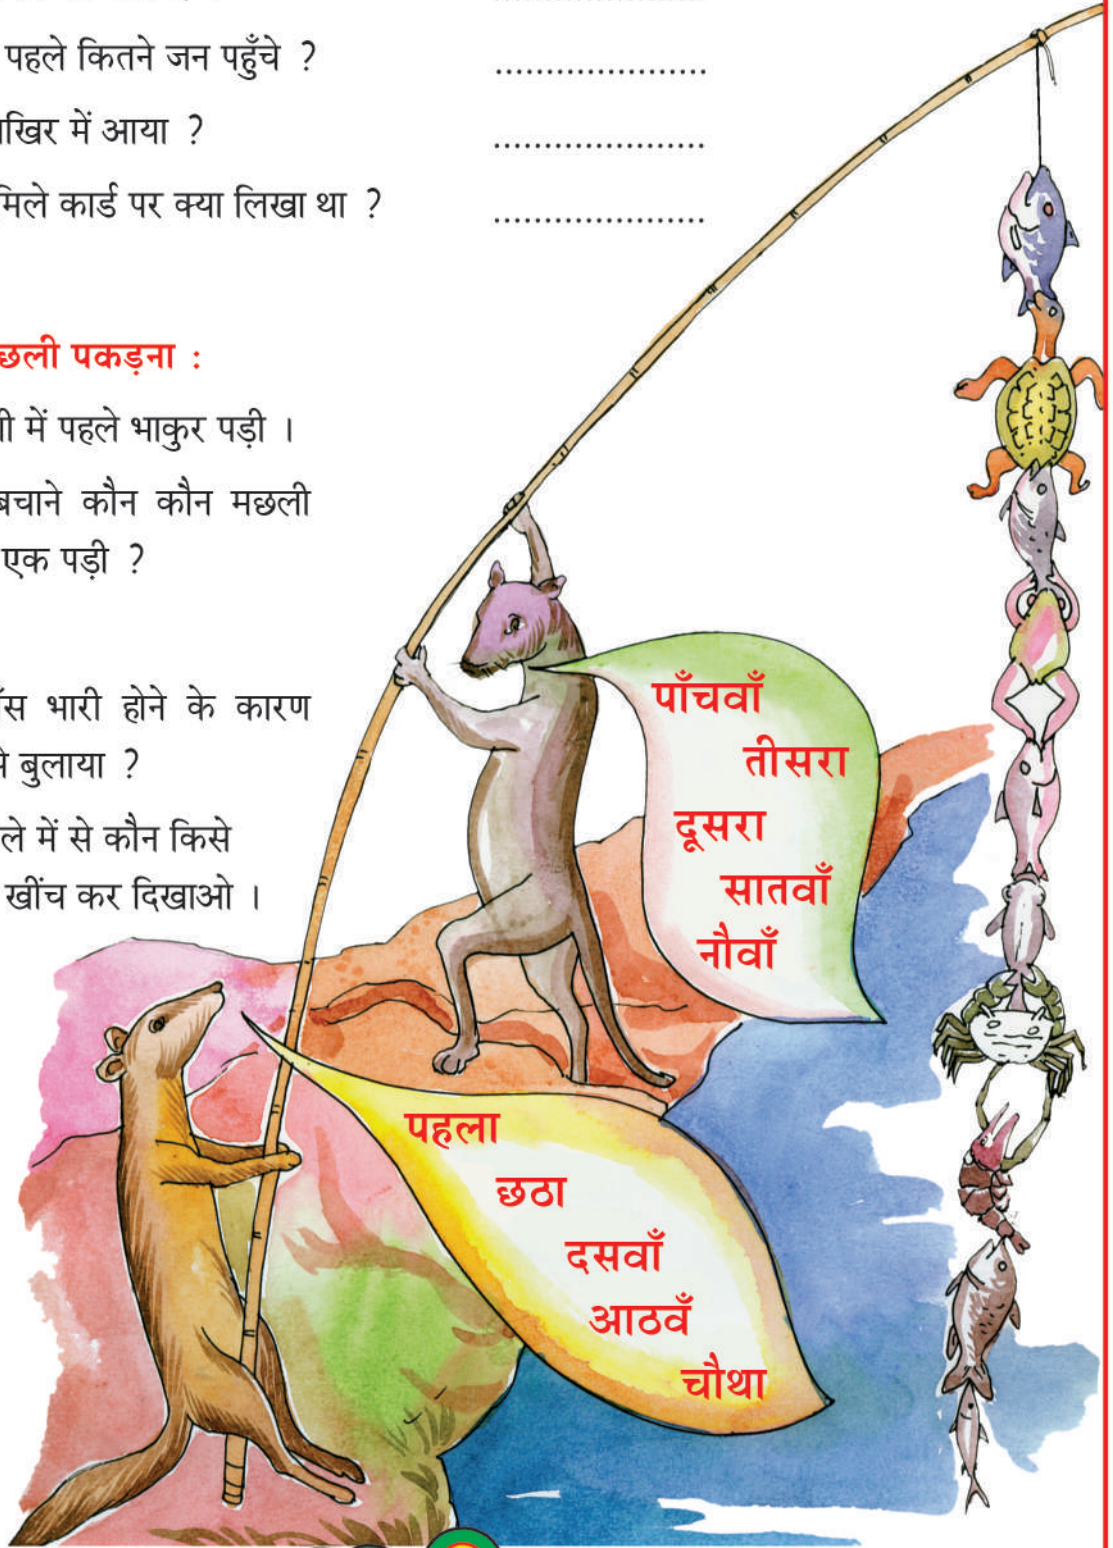 पहले कितने जन पहुँचे ? .....................
खिर में आया ? .....................
मिले कार्ड पर क्या लिखा था ? .....................
छली पकड़ना :
में पहले भाकुर पड़ी ।
बचाने कौन कौन मछली
एक पड़ी ?
स भारी होने के कारण
बुलाया ?
ले में से कौन किसे
खींच कर दिखाओ ।
पाँचवाँ
तीसरा
दूसरा
सातवाँ
नौवाँ
पहला
छठा
दसवाँ
आठवँ
चौथा